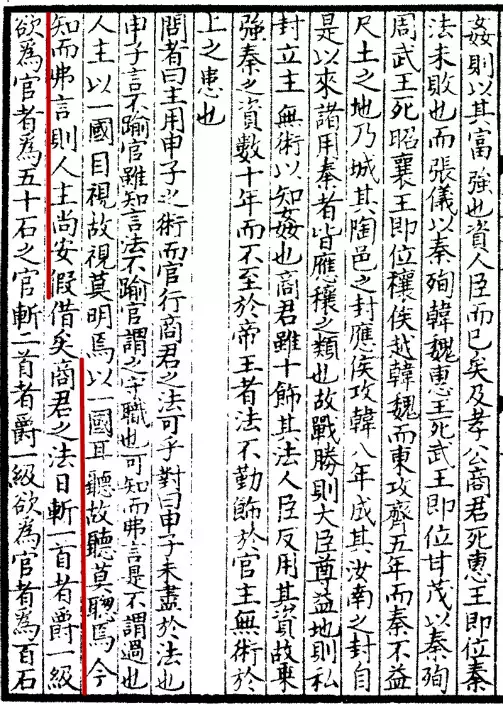 姦則以其富強也資人臣而已矣及孝公商君死惠王即位秦
法未敗也而張儀以秦殉韓魏惠王死武王即位甘茂以秦殉
周武王死昭襄王即位穰侯越韓魏而東攻齊五年而秦不益
尺土之地乃城其陶邑之封應侯攻韓八年成其汝南之封自
是以來諸用秦者皆應穰之類也故戰勝則大臣尊益地則私
封立主無術以知姦也商君雖十飾其法人臣反用其資故乘
強秦之資數十年而不至於帝王者法不勤飾於官主無術於
上之患也
問者曰主用申子之術而官行商君之法可乎對曰申子未盡於法也
申子言不踰官雖知言法不踰官謂之守職也可知而弗言是不謂過也
人主以一國目視故視莫明焉以一國耳聽故聽莫聰焉今
知而弗言則人主尚安假借矣商君之法曰斬一首者爵一級
欲為官者為五十石之官斬二首者爵一級欲為官者為百石